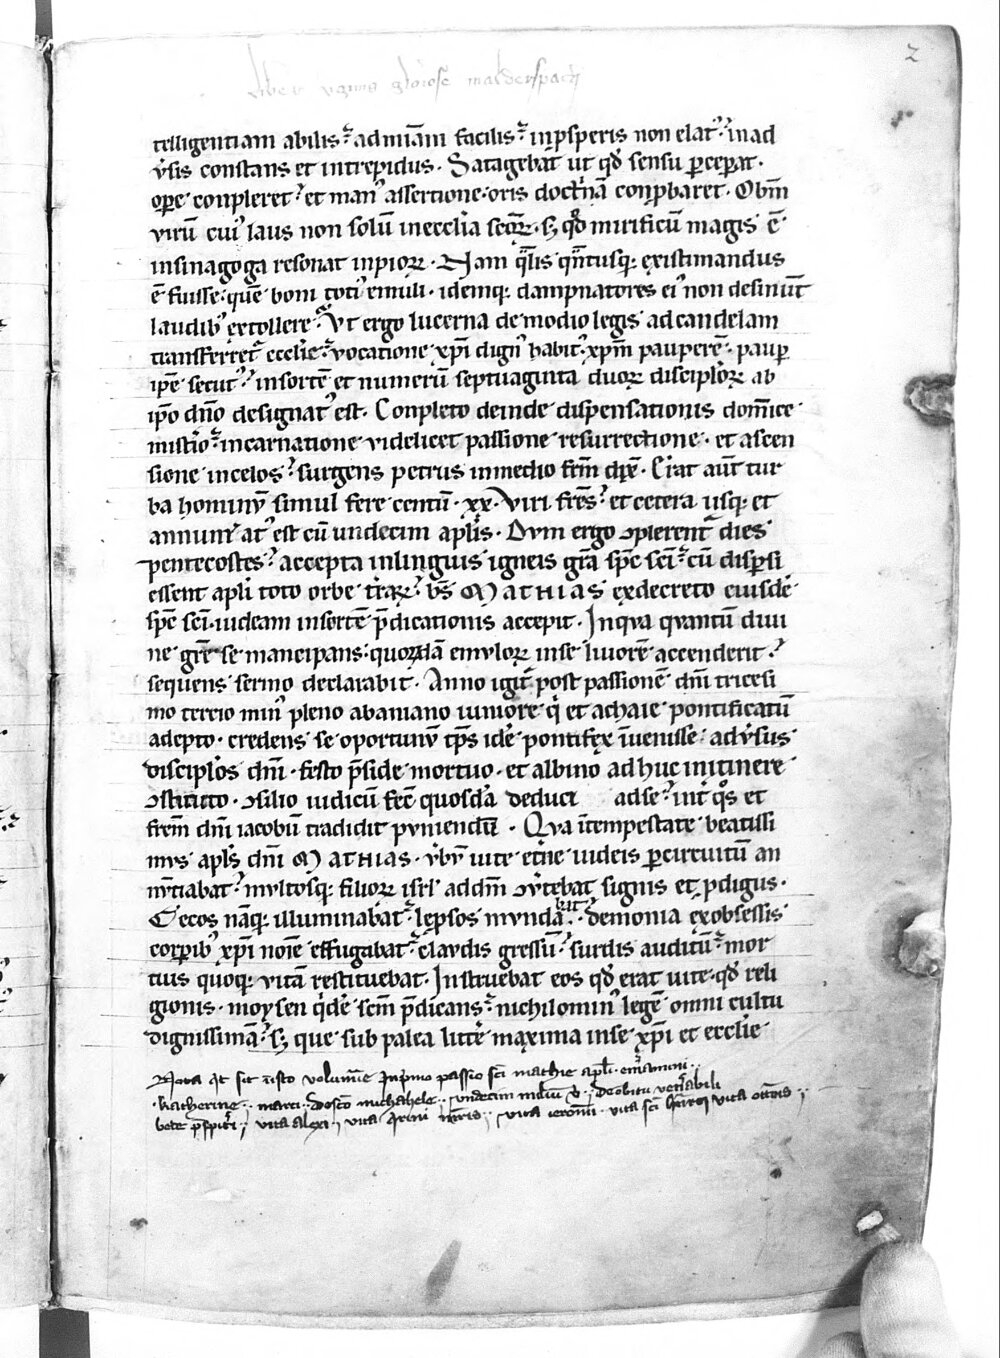 2
liber v̄ginis gloriose malderspach
telligentiam abilis. ad miā̄m facilis. in ꝓsperis non elatꝰ. in ad
v̄sis constans et intrepidus. Satagebat ut qd̄ sensu ꝑceꝑat.
oꝑe conpleret. et manꝰ assertione. oris doct̄nā conꝓbaret. Obm̄
virū cuiꝰ laus non solū in eccl̄ia sc̄oꝝ. sꝫ qd̄ mirificū magis ē
in sinagoga resonat inpioꝝ. Nam q̄lis q̄ntusqꝫ existimandus
ē fuisse. quē boni totiꝰ emuli. idemqꝫ dampnatores eiꝰ non desinūt
laudibꝰ extollere. Vt ergo lucerna de modio legis ad candelam
transferret̄ eccl̄ie. vocatione xp̄i dignꝰ habitꝰ. xp̄m pauperē. paup̄
ip̄e secutꝰ. in sortē et numerū septuaginta duoꝝ discipl̄oꝝ ab
ip̄o dn̄o designatꝰ est. Conpleto deinde dispensationis dom̄ice
mist̄io. incarnatione videlicet passione resurrectione. et ascen
sione in celos. surgens petrus in medio fr̄m dx̄. Erat aūt tur
ba hominū simul fere centū. xx. Viri fr̄es. et cetera usqꝫ et
annumꝰatꝰ est cū undecim apl̄is. Dum ergo ↄplerent̄ dies
pentecostes. accepta in linguis igneis gr̄a sp̄c sc̄i. cū disꝑsi
essent apl̄i toto orbe t̄raꝝ. bs̄ MATHIAS ex decreto eiusdē
sp̄c sc̄i. iudeam in sortē p̄dicationis accepit. In qua quantū divi
ne gr̄e se mancipans. quorūdā emuloꝝ in se livorē accenderit.
sequens sermo declarabit. Anno igit̄ post passionē dn̄i tricesi
mo tercio minꝰ pleno ab aniano iuniore q̄ et achaie pontificatū
adepto. credens se oportunū tp̄s idē pontifex īvenisse. adv̄sus
discipl̄os dn̄i. festo p̄side mortuo. et albino adhuc in itinere
ↄstituto. ↄsilio iudicū fec̄ quosdā deduci ad se. int̄ qͦs et
frēm dn̄i iacobū tradidit puniendū. Qua ītempestate beatissi
mus apl̄s dn̄i MATHIAS. v̄bū vite et̄ne iudeis ꝑ circuitū an
nuntiabat. multosqꝫ filioꝝ isr̄l ad dm̄ ↄv̄tebat signis et ꝓdigiis.
Cecos nāqꝫ illuminabat. lep̄sos mundabat. demonia ex obsessis
corꝑibꝰ xp̄i noīe effugabat. claudis gressū. surdis auditū. mor
tuis quoqꝫ vitā restituebat. Instruebat eos qd̄ erat vite. qd̄ reli
gionis. moysen q̄dē sc̄m p̄dicans. nichilominꝰ legē omni cultu
dignissimā. sꝫ que sub palea litt̄e maxima in se xp̄i et eccl̄ie
Nota q̄ sit ī isto volumīe Inp̄mo passio sc̄i mathie apl̄i.
katherine. marci. De sc̄o michahele. undecim miliū v̄. De obitu ven̄abili
bede p̄sp̄iri. vita alexi. vita ieronimi. vita sc̄i